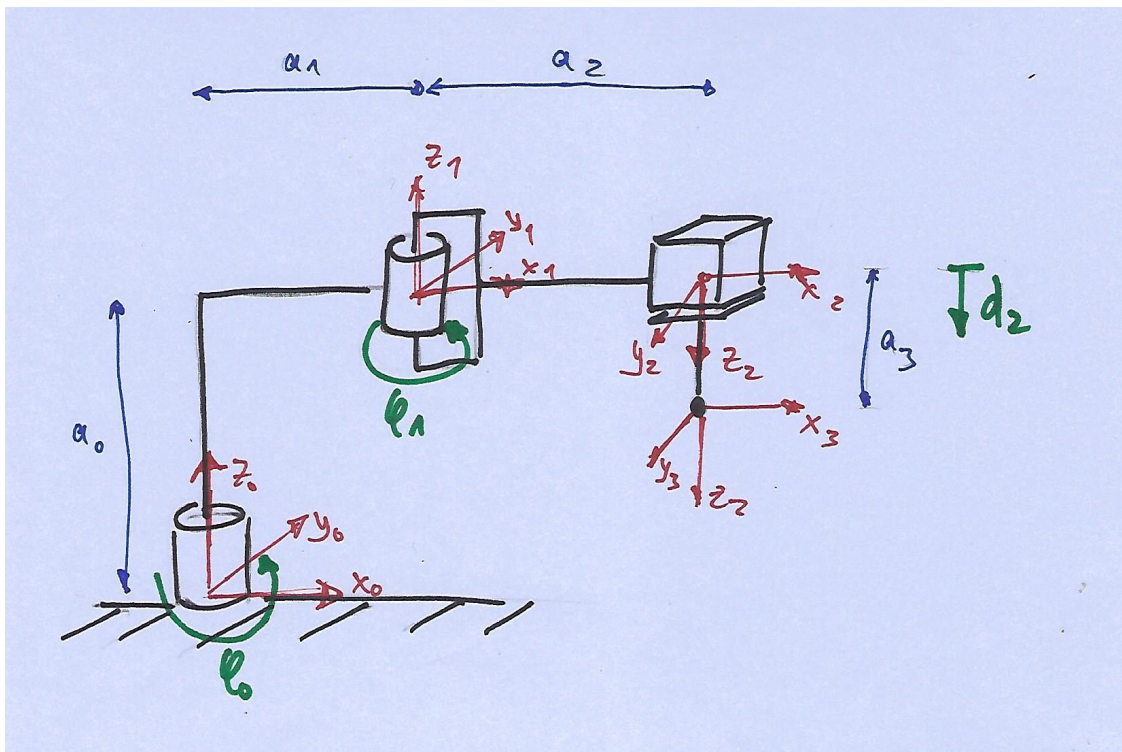 a1 a2
z1
y1
x1
x2
y2
z2
a3
d2
φ1
a0
x3
y3
z2
z0
y0
x0
φ0